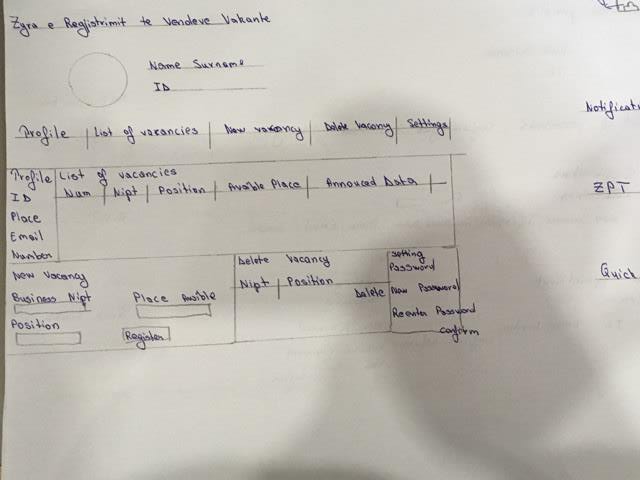 Zyra e Regjistrimit te Vendeve Vakante
Name Surname
ID
Profile | List of vacancies | New vacancy | Delete Vacany | Settings
Notificati
ZPT
Quick
Profile
ID
Place
Email
Number
List of vacancies
Num | Nipt | Position | Avaible Place | Annouced Data
New Vacancy
Business Nipt
Place Avaible
Position
Register
Delete Vacancy
Nipt | Position
Delete
Setting
Password
New Password
Reenter Password
confirm